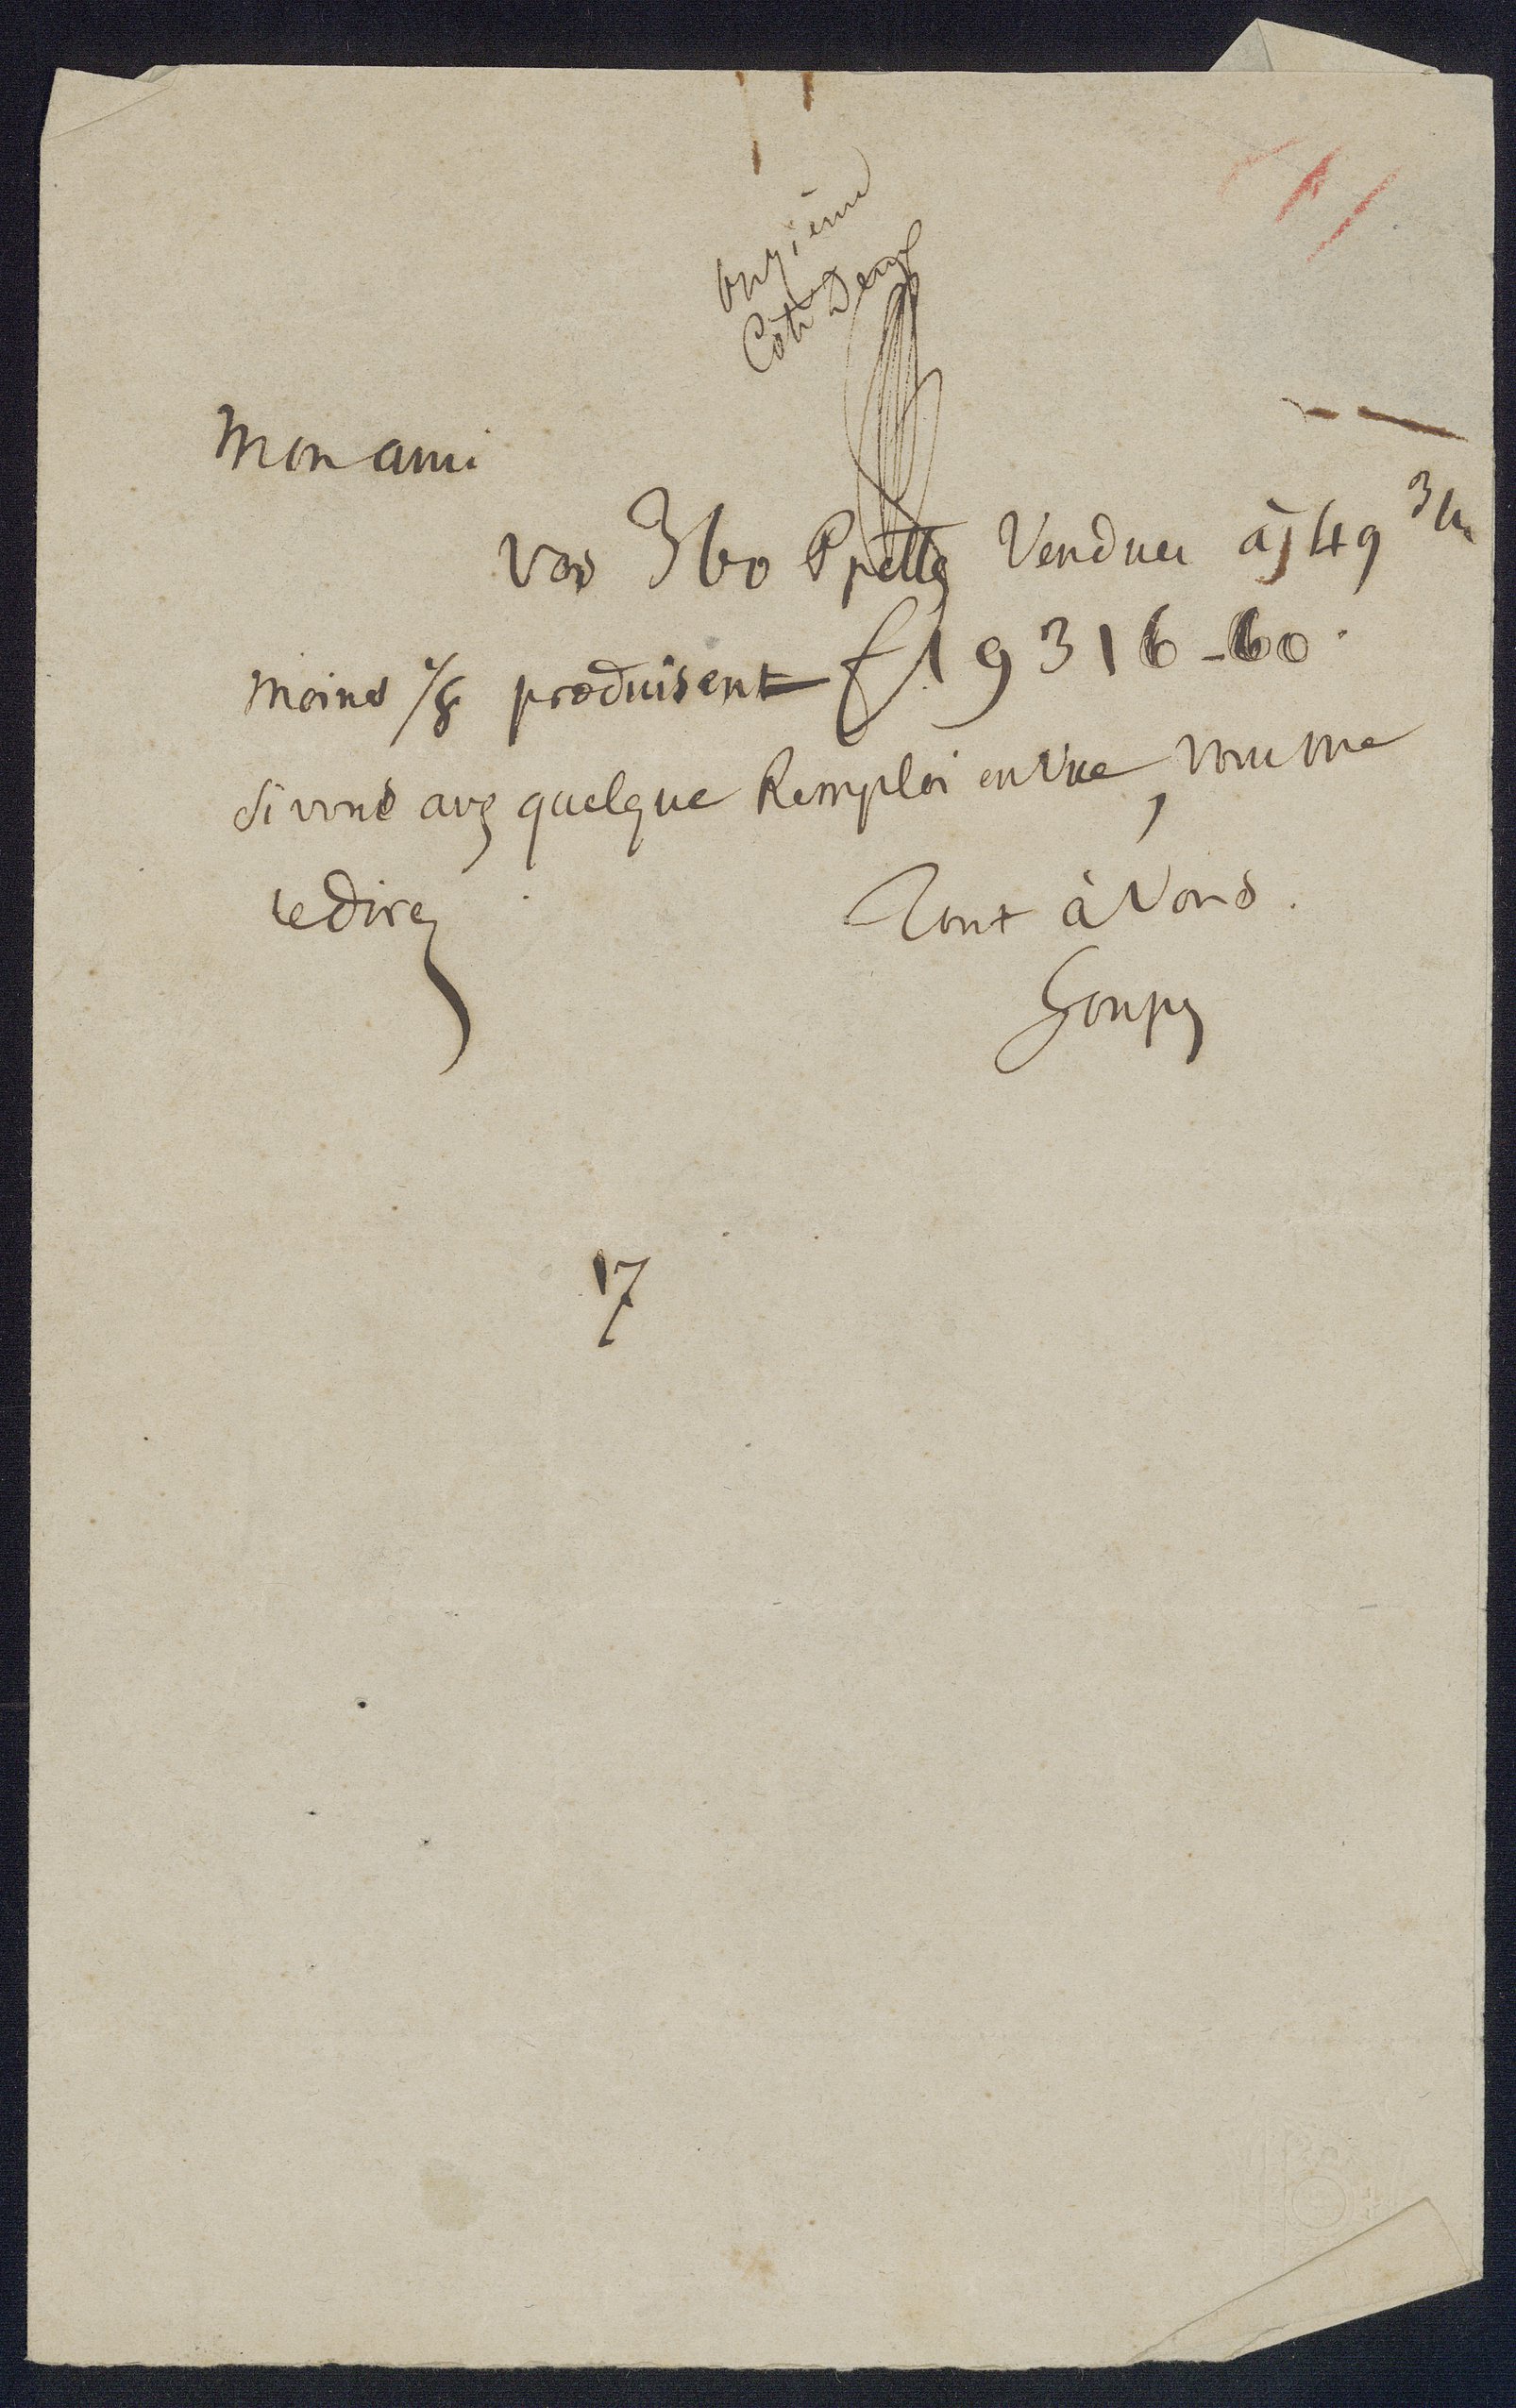 onzième
Cote Deux
Mon ami
Vos 360 Ppelles Vendues à 49 3/4
moins 1/8 produisent f 19316-60.
Si vous avez quelque Remploi en Vue, Vous me
le direz
Tout à Vous.
Goupy
17